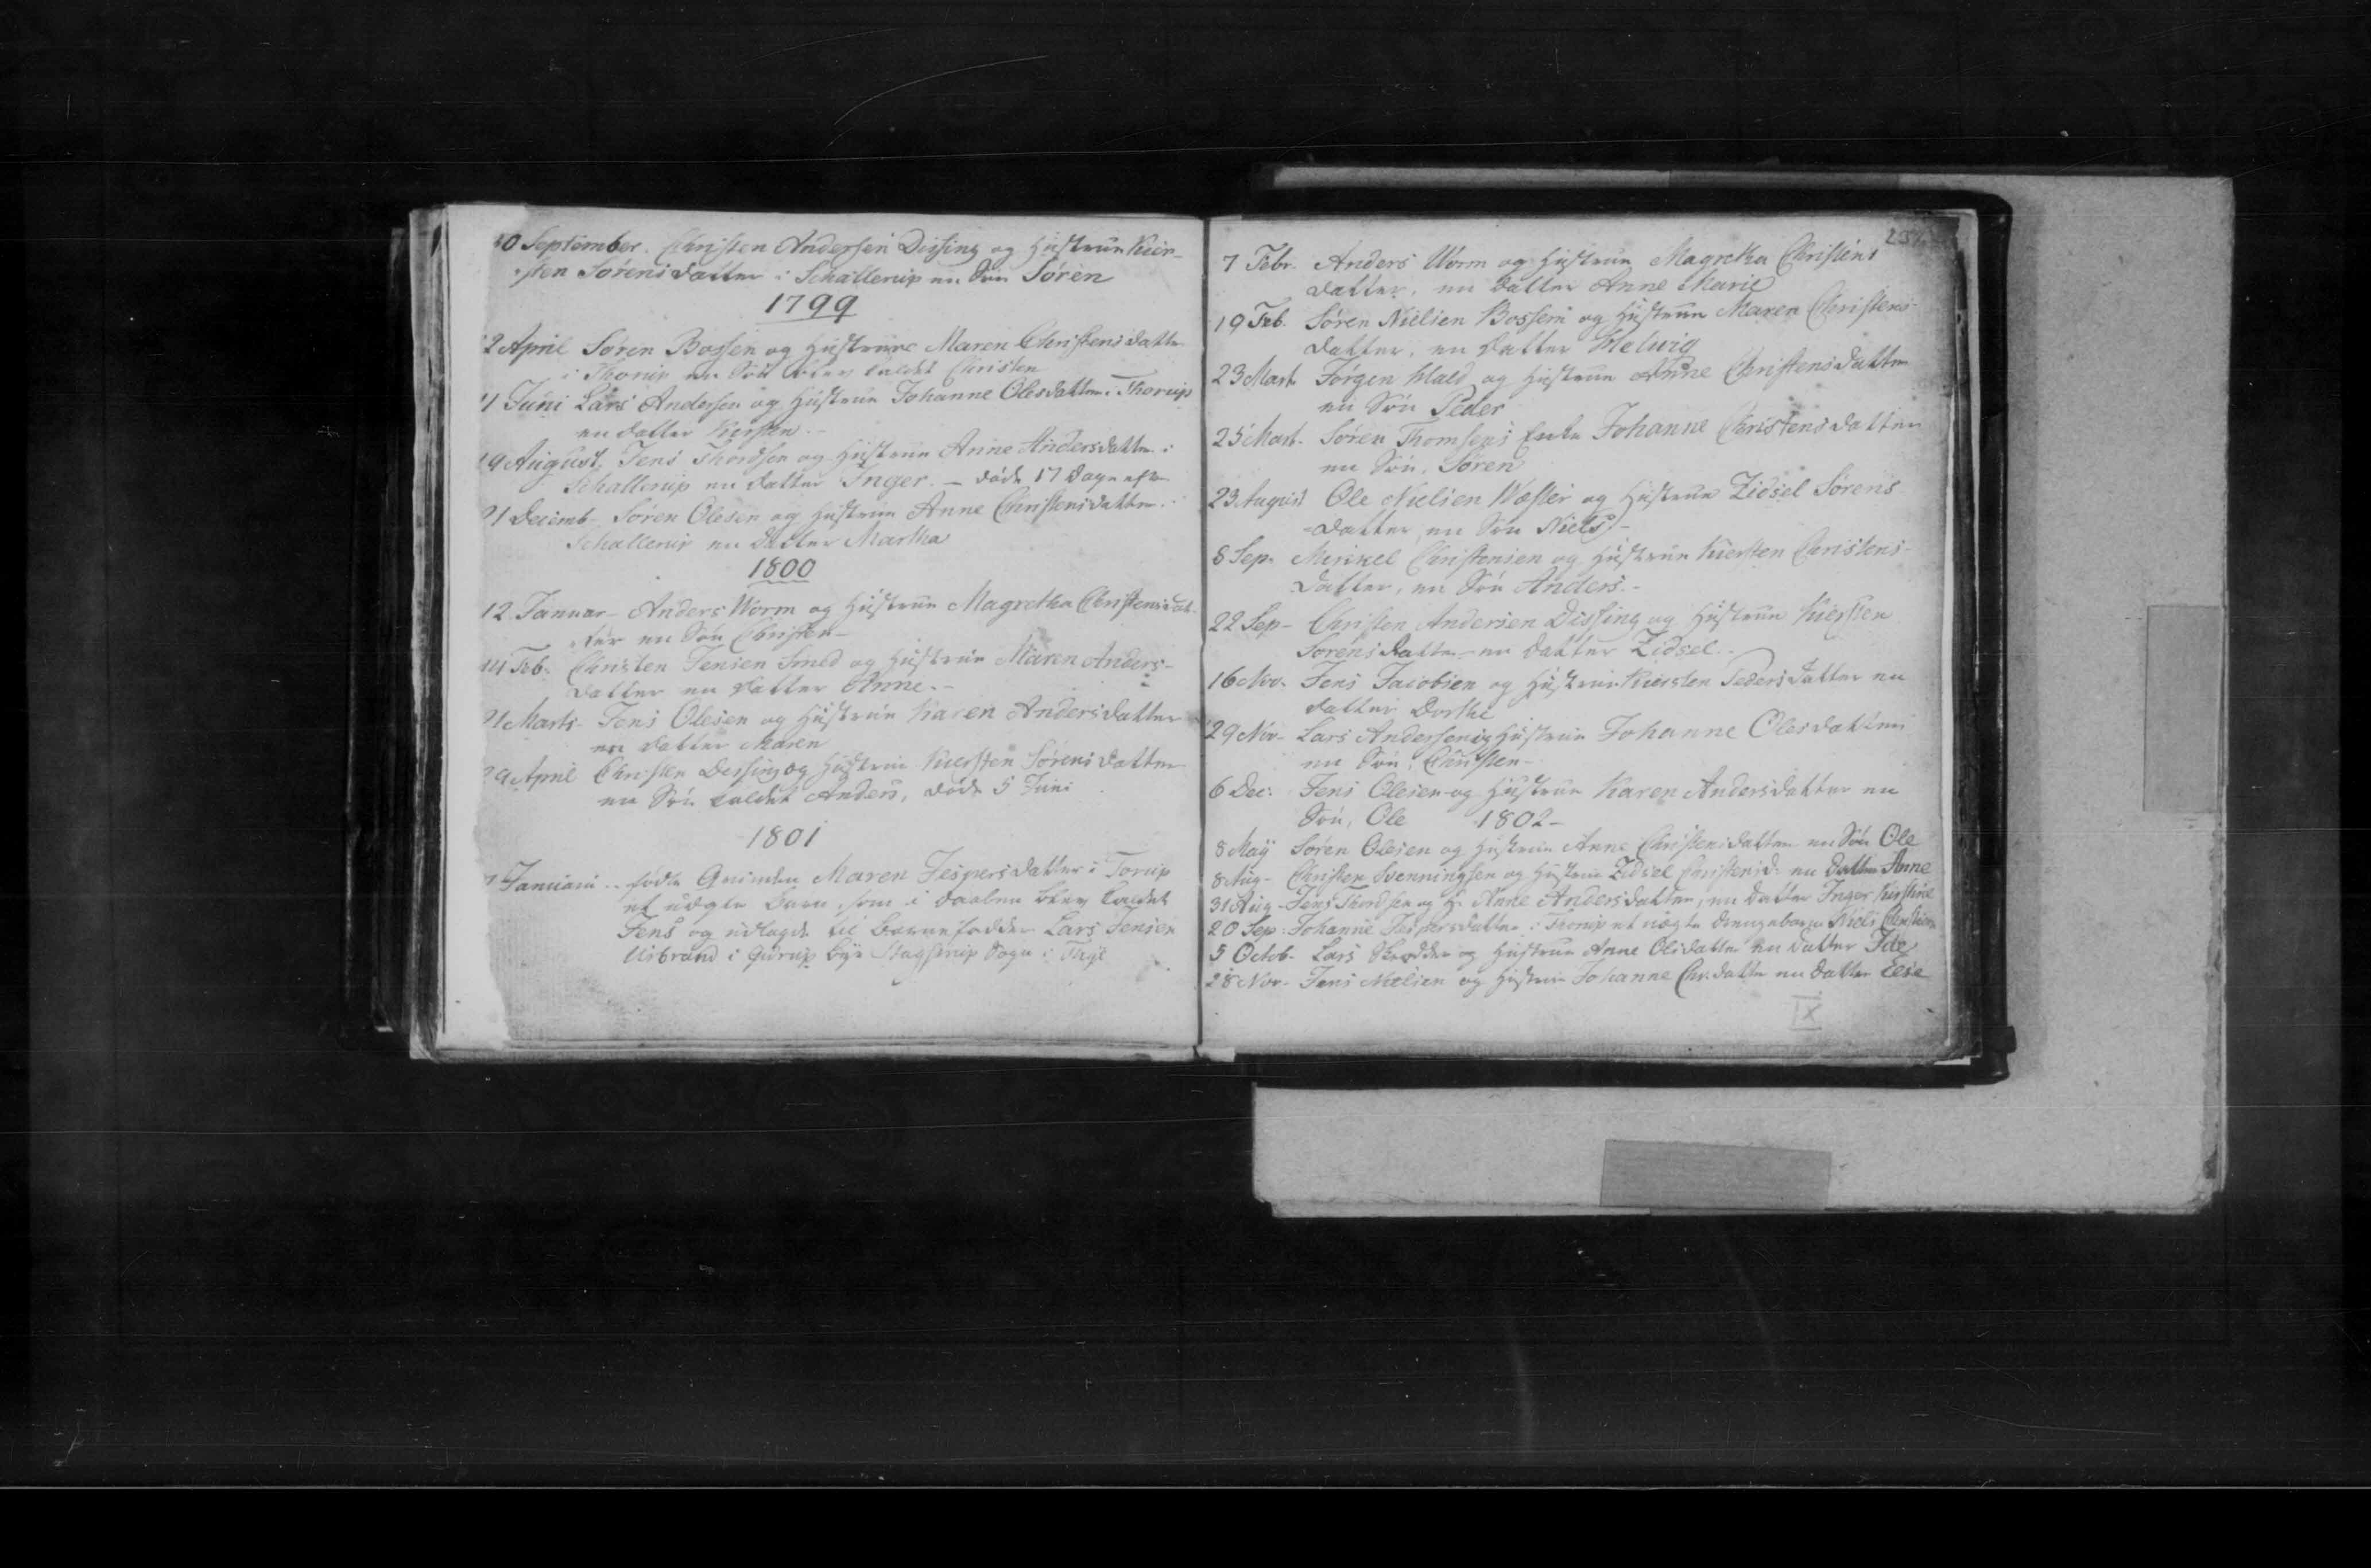 30 September. Christen Andersen Dissing og Hustrue Kier-
sten Sørensdatter i Schallerup en Søn Søren
1799
2 April Søren Bossen og Hustrue Maren Christensdatter
i Thorup en Søn blev kaldet Christen
11 Juni Lars Andersen og Hustrue Johanne Olesdatter i Thorup
en datter Kirsten.-
19 August. Jens Thordsen og Hustrue Anne Andersdatter i
Schallerup en datter Inger. - døde 17 Dage efter
21 Decemb- Søren Olesen og Hustrue Anne Christensdatter i
Schallerup en datter Martha
1800
12 Januar- Anders Worm og Hustrue Magretha Christensdat-
ter en Søn Christen-
14 Feb. Christen Jensen Smed og Hustrue Maren Anders-
datter en datter Anne.-
21 Marts- Jens Olesen og Hustrue Karen Andersdatter
en datter Maren
29 April Christen Dissing og Hustrue Kiersten Sørensdatter
en Søn kaldet Anders, døde 5 Juni
1801
Januarii.. fødte Qvinden Maren Jespersdatter i Torup
et uægte barn, som i daaben blev kaldet
Jens og udlagde til barnefadder Lars Jensen
i bye Stagstrup Sogn i Thye
237.
7 Febr. Anders Worm og Hustrue Magretha Christens
datter, en datter Anne Marie
19 Feb. Søren Nielsen Bossen og Hustrue Maren Christens-
datter, en datter Helwig
23 Mart. Jørgen Hald og Hustrue Anne Christensdatter
en Søn Peder
25 Mart. Søren Thomsens Enke Johanne Christensdatter
en Søn, Søren
23 August Ole Nielsen Wæster og Hustrue Zidsel Sørens
datter, en Søn Niels-
8 Sep. Mickel Christensen og Hustrue Kiersten Christens-
datter, en Søn Anders.-
22 Sep- Christen Andersen Dissing og Hustrue Kiersten
Sørensdatter- en datter Zidsel.-
16 Nov. Jens Jacobsen og Hustrue Kiersten Pedersdatter en
datter Dorthe
29 Nov- Lars Andersen og Hustrue Johanne Olesdatter
en Søn, Christen-
6 Dec: Jens Olesen og Hustrue Karen Andersdatter en
Søn, Ole 1802-
8 Maÿ Søren Olesen og Hustrue Anne Christensdatter en Søn Ole
8 Aug- Christen Svenningsen og Hustrue Zidsel Christensd. en Datter Anne
31 Aug- Jens Thordsen og H. Anne Andersdatter, en datter Inger Kirstine
20 Sep: Johanne Jespersdatter i Thorup et uægte drengebarn Niels Christian
5 Octob- Lars Skrædder og Hustrue Anne Olsdatter en datter
28 Nov- Jens Nielsen og Hustrue Johanne Chr.datter en datter Else
IX